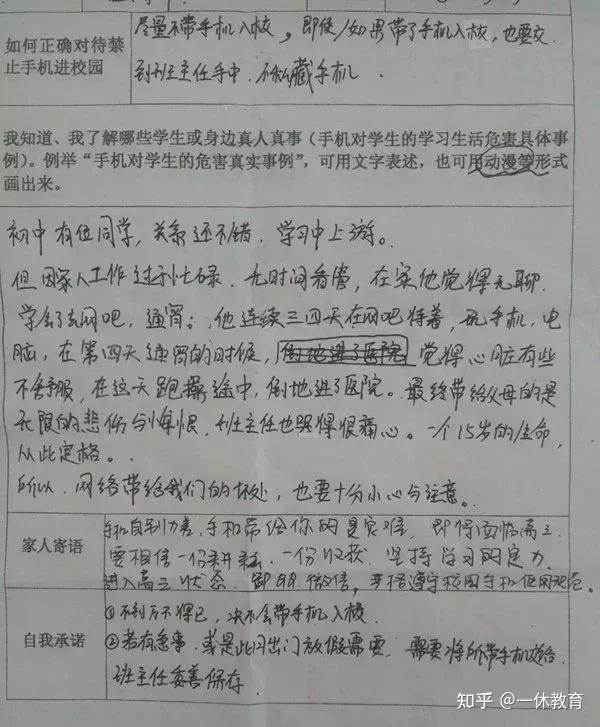 如何正确对待禁
止手机进校园
尽量不带手机入校，即使/如果带了手机入校，也要交
到班主任手中．不私藏手机．
我知道、我了解哪些学生或身边真人真事（手机对学生的学习生活危害具体事
例）。例举“手机对学生的危害真实事例”，可用文字表述，也可用动漫等形式
画出来。
初中有位同学，关系还不错．学习中上游。
但因家人工作过于忙碌．无时间看管，在家他觉得无聊．
学会了去网吧，通宵；他连续三四天在网吧待着，玩手机，电
脑，在第四天通宵的时候，倒地进了医院 觉得心脏有些
不舒服，在这天跑操途中，倒地进了医院。最终带给父母的是
无限的悲伤与悔恨．班主任也哭得很痛心。一个15岁的生命，
从此定格。．
所以．网络带给我们的坏处，也要十分小心与注意。
家人寄语
自制力差，手机带给你的是灾难．即将面临高三．
要相信一份耕耘．一份收获．坚持学习的定力．
进入高三状态．卸QQ.微信，严格遵守校园手机使用规范。
自我承诺
①不到万不得已，决不会带手机入校．
②若有急事．或是出门放假需要．需要将所带手机送给
班主任妥善保存．
知乎 @一休教育